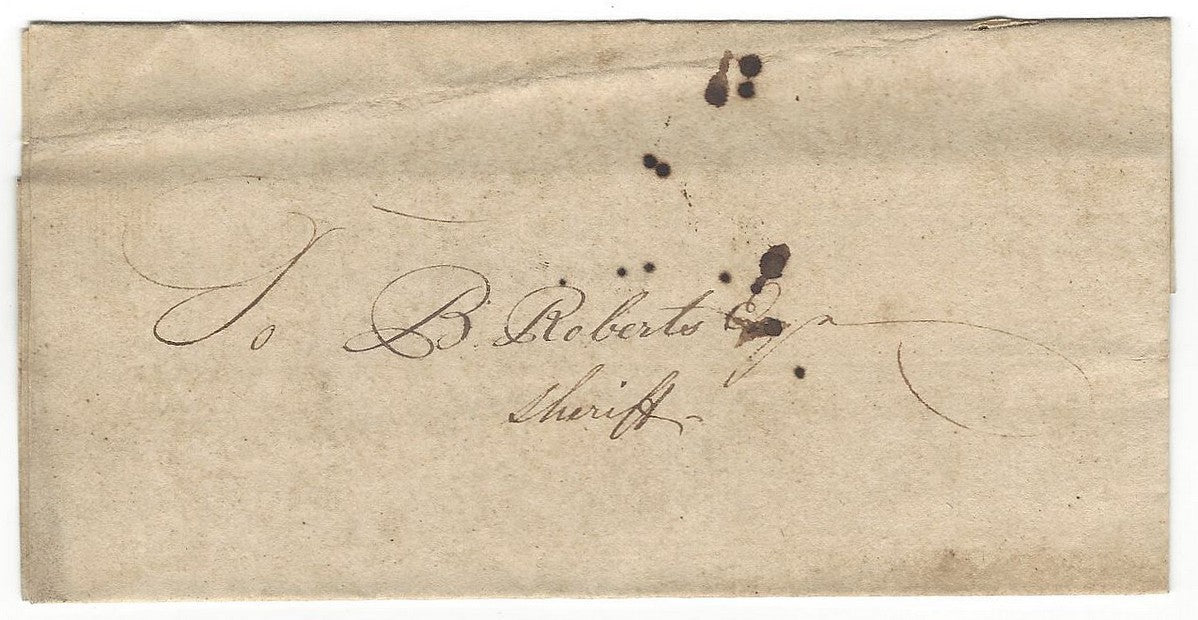 To B. Roberts Esqr
Sheriff